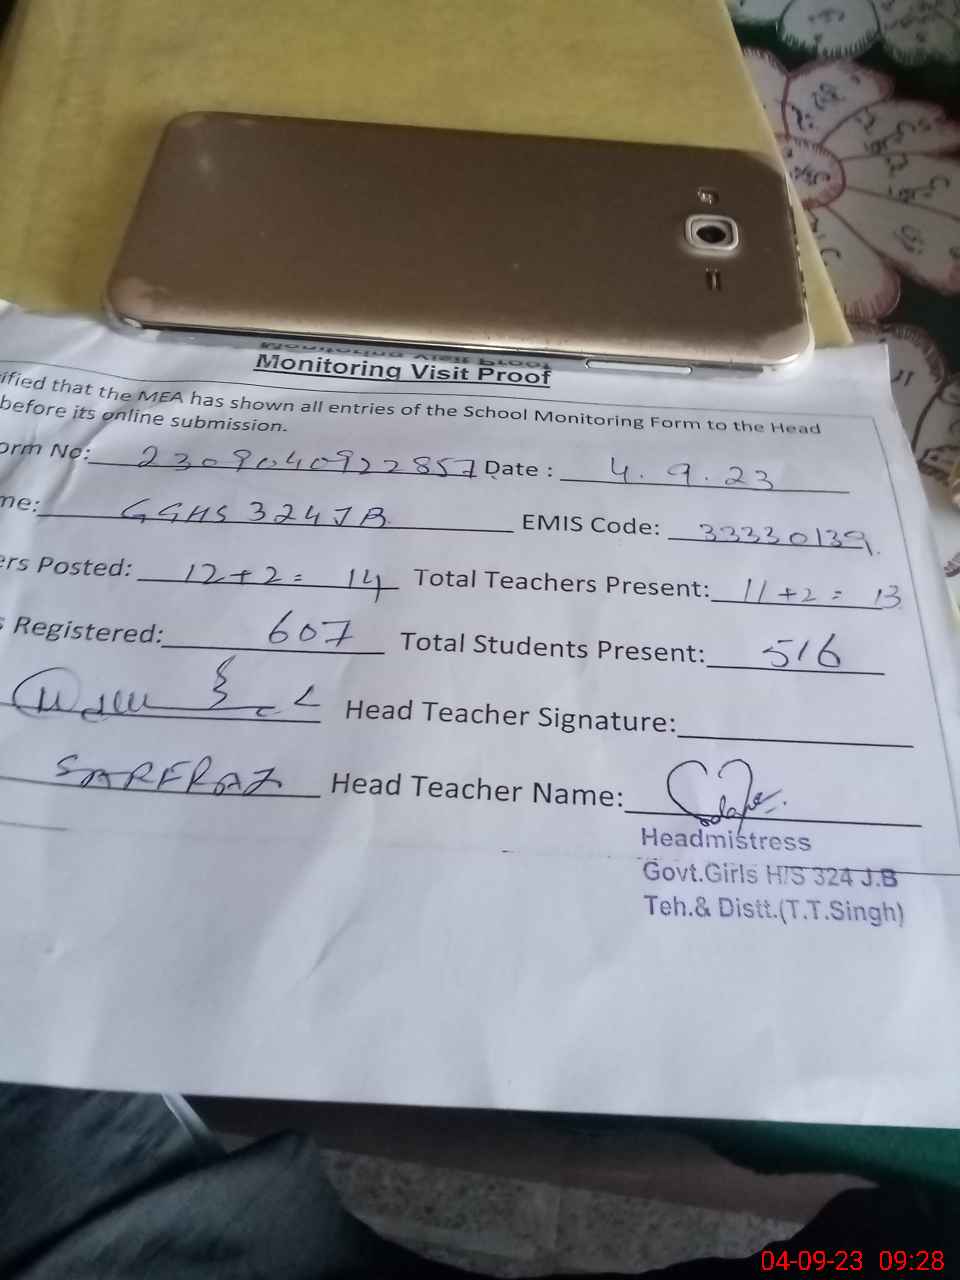 Monitoring Visit Proof
ified that the MEA has shown all entries of the School Monitoring Form to the Head
before its online submission.
orm No: 2309040922857 Date : 4.9.23
me: GGHS 324 JB EMIS Code: 33330139
ers Posted: 12+2= 14 Total Teachers Present: 11+2= 13
s Registered: 607 Total Students Present: 516
Head Teacher Signature:
SARFRAZ Head Teacher Name:
Headmistress
Govt.Girls H/S 324 J.B
Teh.& Distt.(T.T.Singh)
04-09-23 09:28